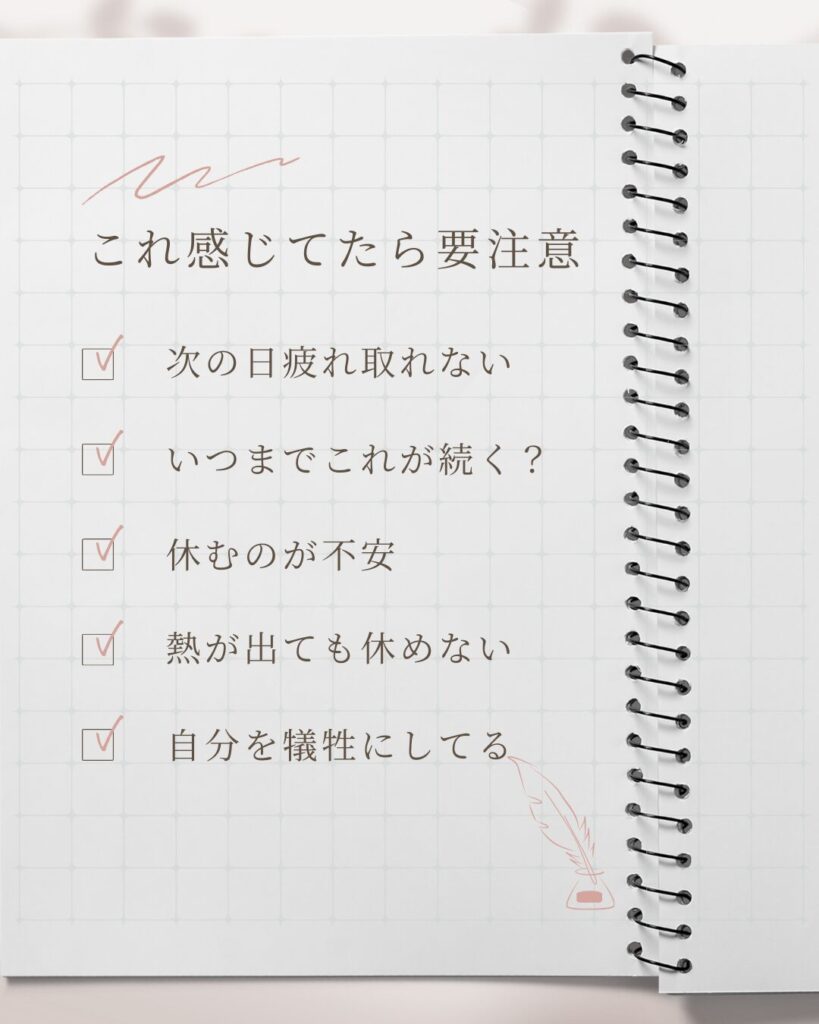 これ感じてたら要注意
次の日疲れ取れない
いつまでこれが続く？
休むのが不安
熱が出ても休めない
自分を犠牲にしてる